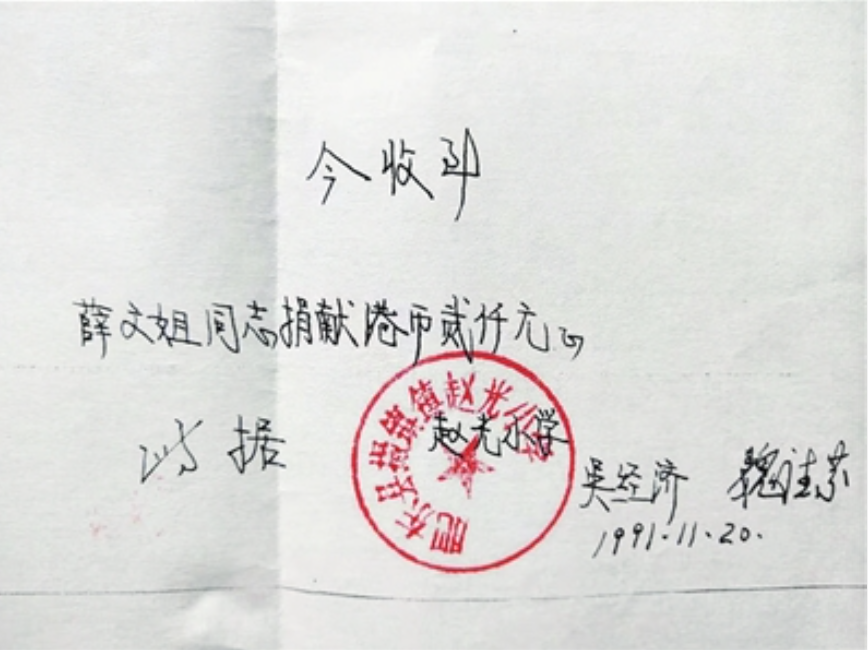 今收到
薛文姐同志捐献港币贰仟元正
此据
肥东县撮镇镇赵光小学
赵光小学
吴经济
1991.11.20.